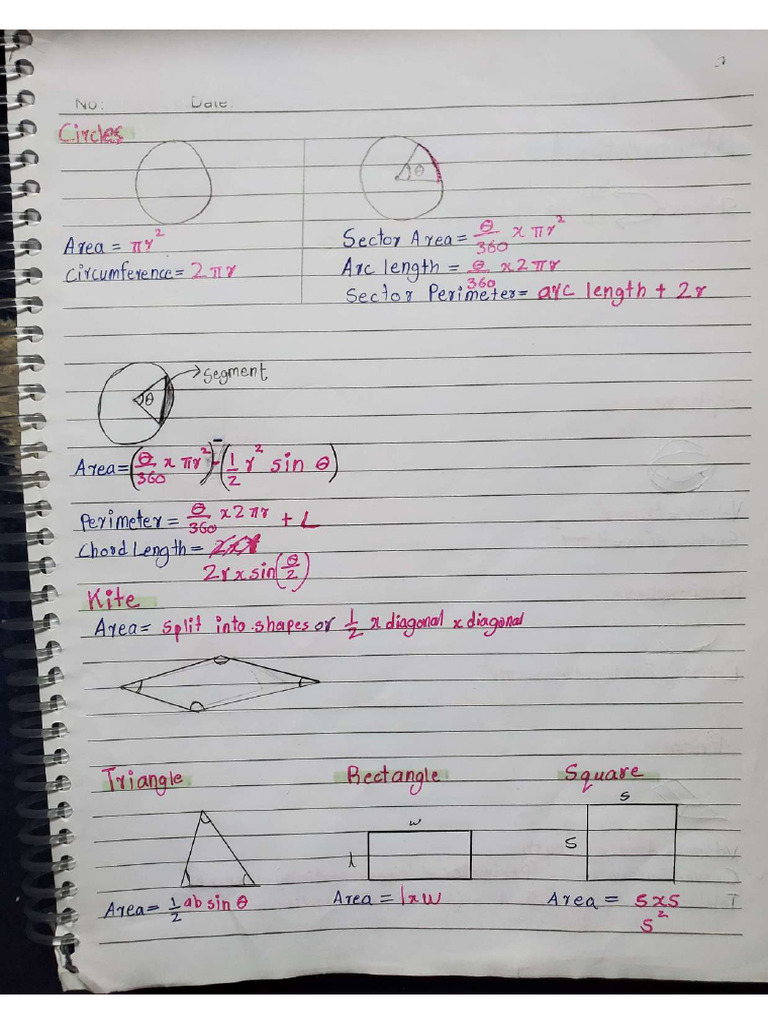 No: Date:
Circles
θ
Area = πr²
Circumference = 2πr
Sector Area = θ/360 x πr²
Arc length = θ/360 x 2πr
Sector Perimeter = arc length + 2r
Segment
θ
Area = (θ/360 x πr²) - (1/2 r² sin θ)
Perimeter = θ/360 x 2πr + L
Chord Length =
2r x sin(θ/2)
Kite
Area = split into shapes or 1/2 x diagonal x diagonal
Triangle Rectangle Square
w
l
s
s
Area = 1/2 ab sin θ
Area = l x w
Area = s x s
s²